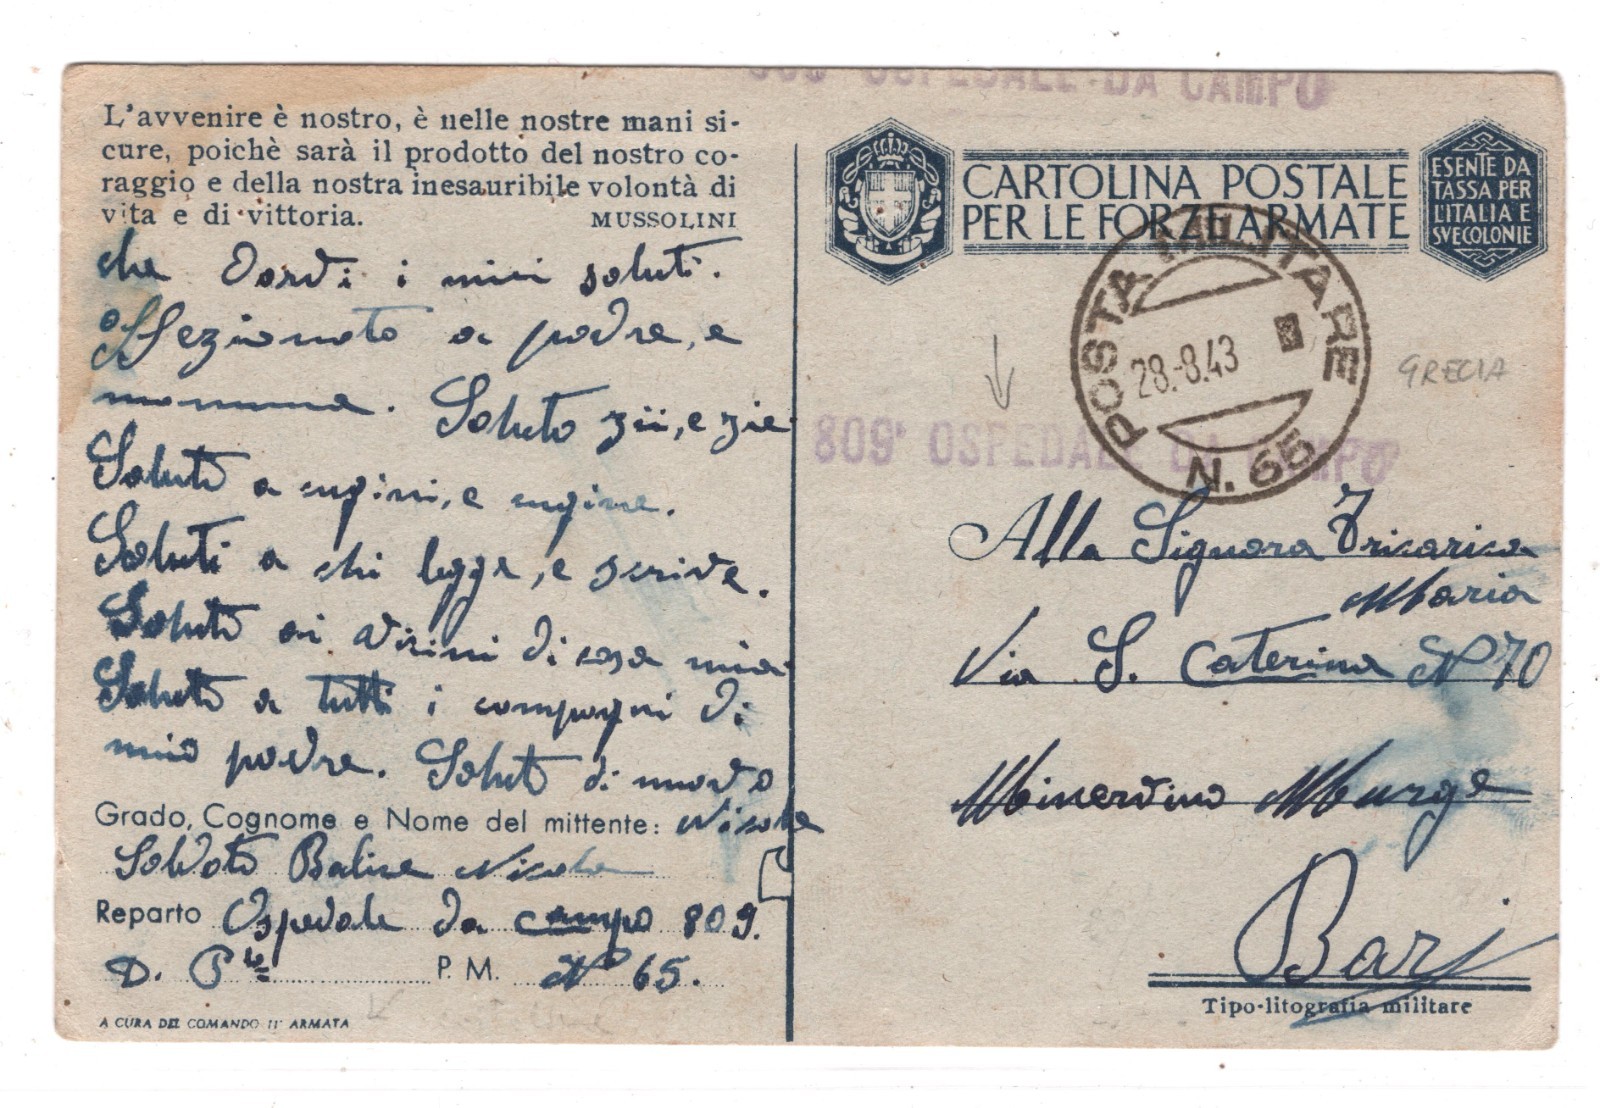 809° OSPEDALE DA CAMPO
L'avvenire è nostro, è nelle nostre mani si-
cure, poichè sarà il prodotto del nostro co-
raggio e della nostra inesauribile volontà di
vita e di vittoria. MUSSOLINI
che Dordi i miei saluti.
Affezionato a padre, e
mamma. Saluto zii, e zie
Saluti a cugini, e cugine.
Saluti a chi legge, e scrive.
Saluti ai vicini di casa mia
Saluti a tutti i compagni di
mio padre. Saluti di nuovo
Grado, Cognome e Nome del mittente: Nicola
Soldato Nicola
Reparto Ospedale da campo 809.
D. P.M. N° 65.
A CURA DEL COMANDO 11ª ARMATA
CARTOLINA POSTALE
PER LE FORZE ARMATE
ESENTE DA
TASSA PER
L'ITALIA E
SVE COLONIE
POSTA MILITARE
28.-8.43
N. 65
GRECIA
809° OSPEDALE DA CAMPO
Alla Signora Tricarico
Maria
Via S. Caterina N 70
Minervino Murge
Bari
Tipo-litografia militare